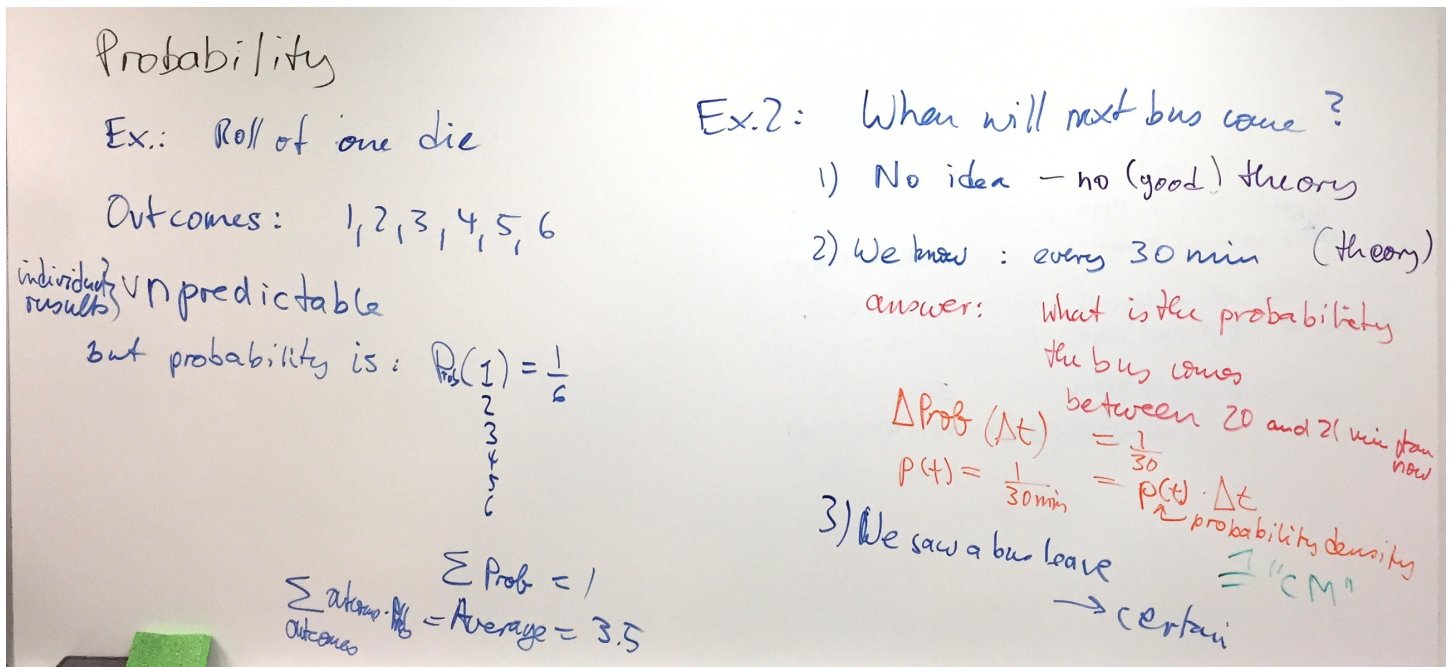 Probability
Ex.: Roll of one die
Outcomes: 1, 2, 3, 4, 5, 6
individual results) unpredictable
but probability is: Prob(1) = 1/6
2
3
4
5
6
Σ Prob = 1
Σ outcome · Prob = Average = 3.5
outcomes
Ex. 2: When will next bus come?
1) No idea – no (good) theory
2) We know: every 30 min (theory)
answer: What is the probability
the bus comes
between 20 and 21 min from now
ΔProb (Δt) = 1/30
p(t) = 1/30min = p(t) · Δt
probability density
3) We saw a bus leave
= "CM"
→ certain